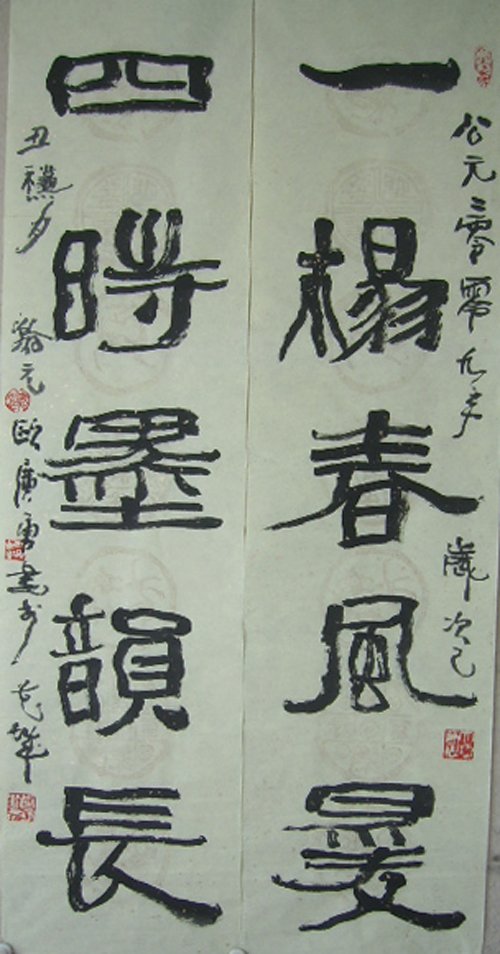 公元二零零九年 歲次己
一楊春風曼
四時墨韻長
丑 歐廣勇書於花城